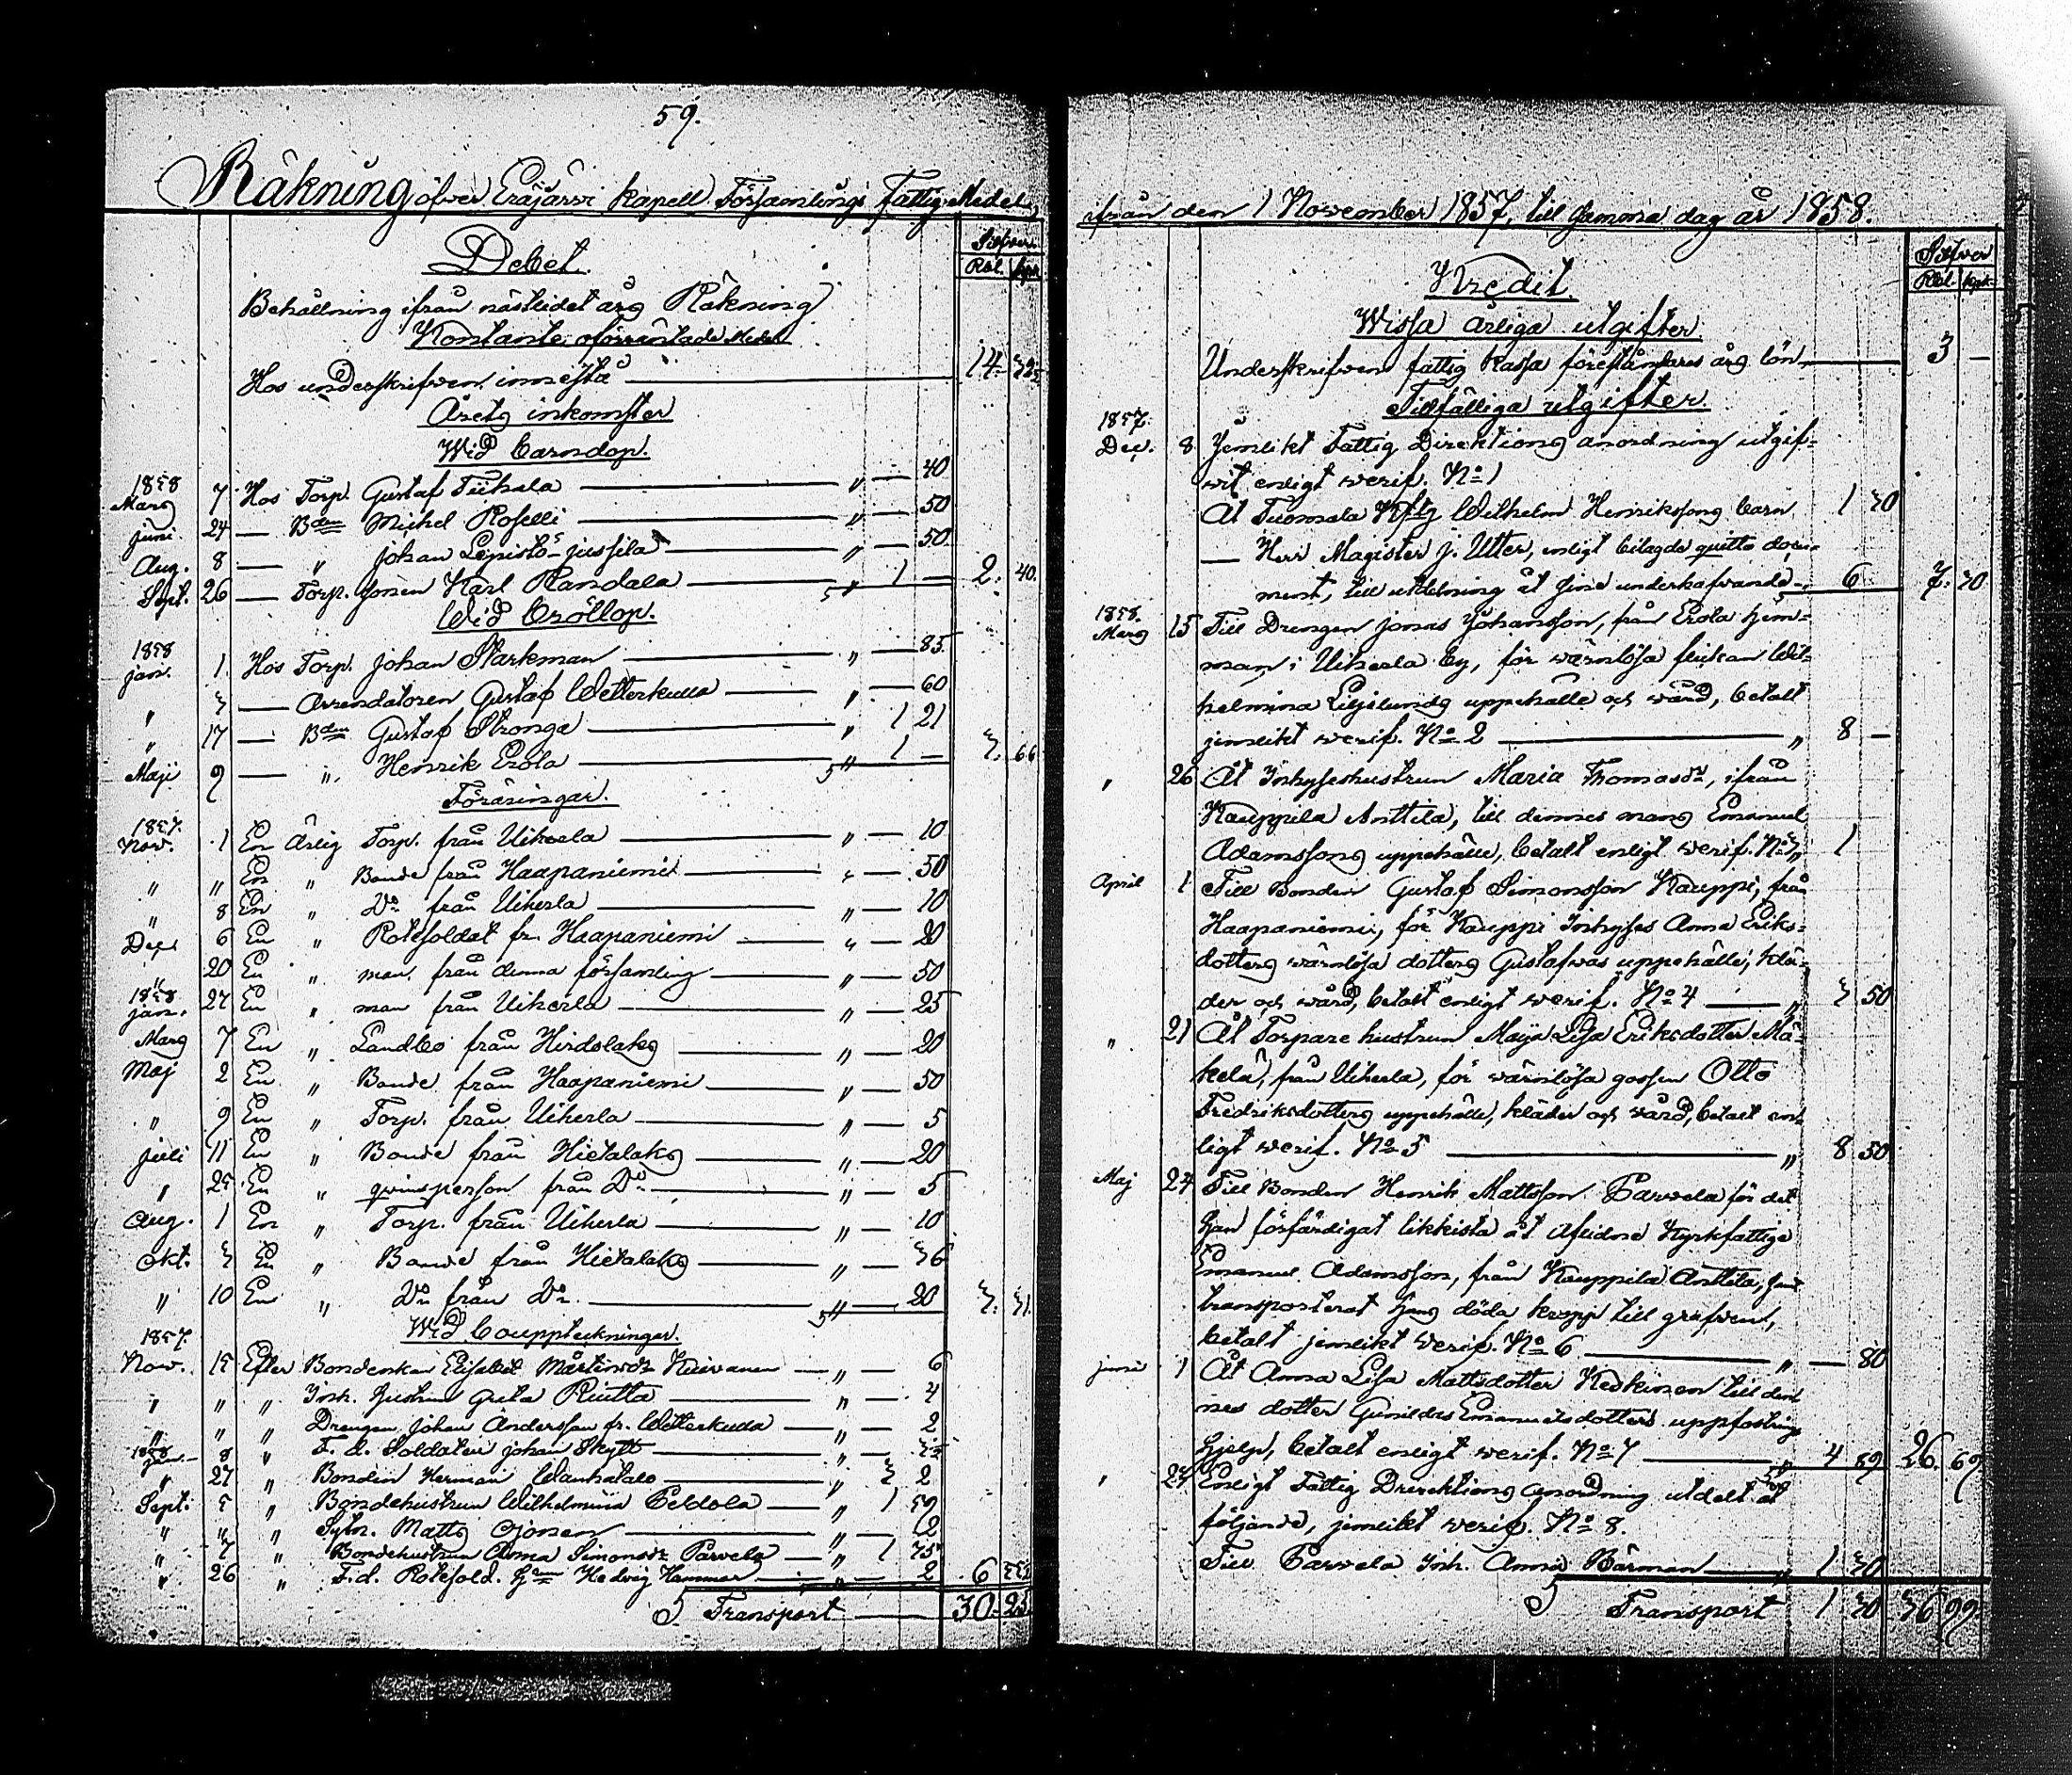 59.
Räkning öfver Eräjärvi Kapell Församlings Fattig Medel,
Debet.
Silfver.
Rbl. kpk.
Behållning ifrån nästledet års Räkning
Kontante oförräntade Medel
Hos underskrifven innestå 14.
Årets inkomster
Wid barndop.
1858
Mars 7 Hos Torp. Gustaf Tiihala " — 40
Juni 24 — Bden Michel Roselli " — 50
Aug. 8 — " Johan Lepistö-Jussila " — 50
Sept. 26 — Torp. sonen Karl Randala " 1 — 2. 40.
Wid bröllop.
1858
Jan. 1. Hos Torp. Johan Starkman " — 85
" 3 — Arrendatoren Gustaf Wetterkulla " — 60
" 17 — Bden Gustaf Stronga " 1 21
Maji 9 — " Henrik Erola " 1 — 3. 66
Föräringar.
1857.
Nov. 1 En ärlig Torp. från Uiherla " — 10
" " En " Bonde från Haapaniemi " — 50
" 8 En " Do från Uiherla " — 10
Dec. 6 En " Rotesoldat fr. Haapaniemi " — 20
" 20 En " man från denna församling " — 50
1858
Jan. 27 En " man från Uiherla " — 25
Mars 7 En " Landbo från Hirdolaks " — 20
Maj 2 En " Bonde från Haapaniemi " — 50
" 9 En " Torp. från Uiherla " — 5
Juli 11 En " Bonde från Hietalaks " — 20
" 25 En " qvinsperson från Do " — 5
Aug. 1 En " Torp. från Uiherla " — 10
Okt. 3 En " Bonde från Hietalaks " — 36
" 10 En " Do från Do " — 20 3. 31.
Wid bouppteckningar.
1857.
Nov. 15 Efter Bondenkan Elisabet Mårtensdr Kuivanen " — 6
" " " Inh. hustrun Greta Riutta " — 4
" " " Drengen Johan Andersson fr. Wetterkulla " — 2
1858
Jan. 8 " F. d. Soldaten Johan Skytt "
" 27 " Bonden Herman Wanhatalo " 3 2
Sept. 5 " Bondehustrun Wilhelmina Peldola " 1 59
" " " Sytn. Matts " — 2
" 7 " Bondehustrun Anna Simonsdr Parvela " 1 75
" 26 " F. d. Rotesold. Hedvig Hammar " — 2 6
S Transport 30. 25.
ifrån den 1 November 1857, till samma dag år 1858.
Kredit.
Silfver
Rbl. kpk.
Wissa årliga utgifter.
Underskrifven fattig Kassa föreståndares års lön 3 —
Tillfälliga utgifter.
1857.
Dec. 8 Jemlikt Fattig Direktions anordning utgif-
vit enligt verif. No 1
Åt Tuomala Wilhelm Henrikssons barn 1 30
— Herr Magister J. Utter, enligt bilagde quitto docu-
ment, till utdelning åt sine underhafvande 6 7. 30
1858.
Mars 15 Till Drengen Jonas Johansson, från Erola hem-
man i Uiherla by, för värnlösa flickan Wil-
helmina Liljelunds uppehälle och vård, betalt
jemlikt verif. No 2 " 8 —
" 26 Åt Inhyseshustrun Maria Thomasdr, ifrån
Kauppila Anttila, till dennes mans Emanuel
Adamssons uppehälle, betalt enligt verif. No 3 " 1
April 1 Till Bonden Gustaf Simonsson Kauppi, från
Haapaniemi, för Kauppi Inhyses Anna Eriks-
dotters värnlösa dotters Gustafvas uppehälle, klä-
der och vård, betalt enligt verif. No 4 " 3 50
" 21 Åt Torpare hustrun Maija Lisa Eriksdotter Mä-
kelä, från Uiherla, för värnlösa gossen Otto
Fredriksdotters uppehälle, kläder och vård, betalt en-
ligt verif. No 5 " 8 50
Maj 24 Till Bonden Henrik Mattsson Parvela för det
han förfärdigat likkista åt aflidne Kyrkfattige
Emanuel Adamsson, från Kauppila Anttila,
transporterat hans döda kropp till grafven,
betalt jemlikt verif. No 6 " — 80
Juni 1 Åt Anna Lisa Mattsdotter Keskinen till den-
nes dotter Gunildas Emanuelsdotters uppfostrings
hjelp, betalt enligt verif. No 7 4 89 26. 69
" 24 Enligt Fattig Direktions anordning utdelt åt
följande, jemlikt verif. No 8.
Till Parvela Inh. Anna Bärman " 1 30
S Transport 1 30 36 99